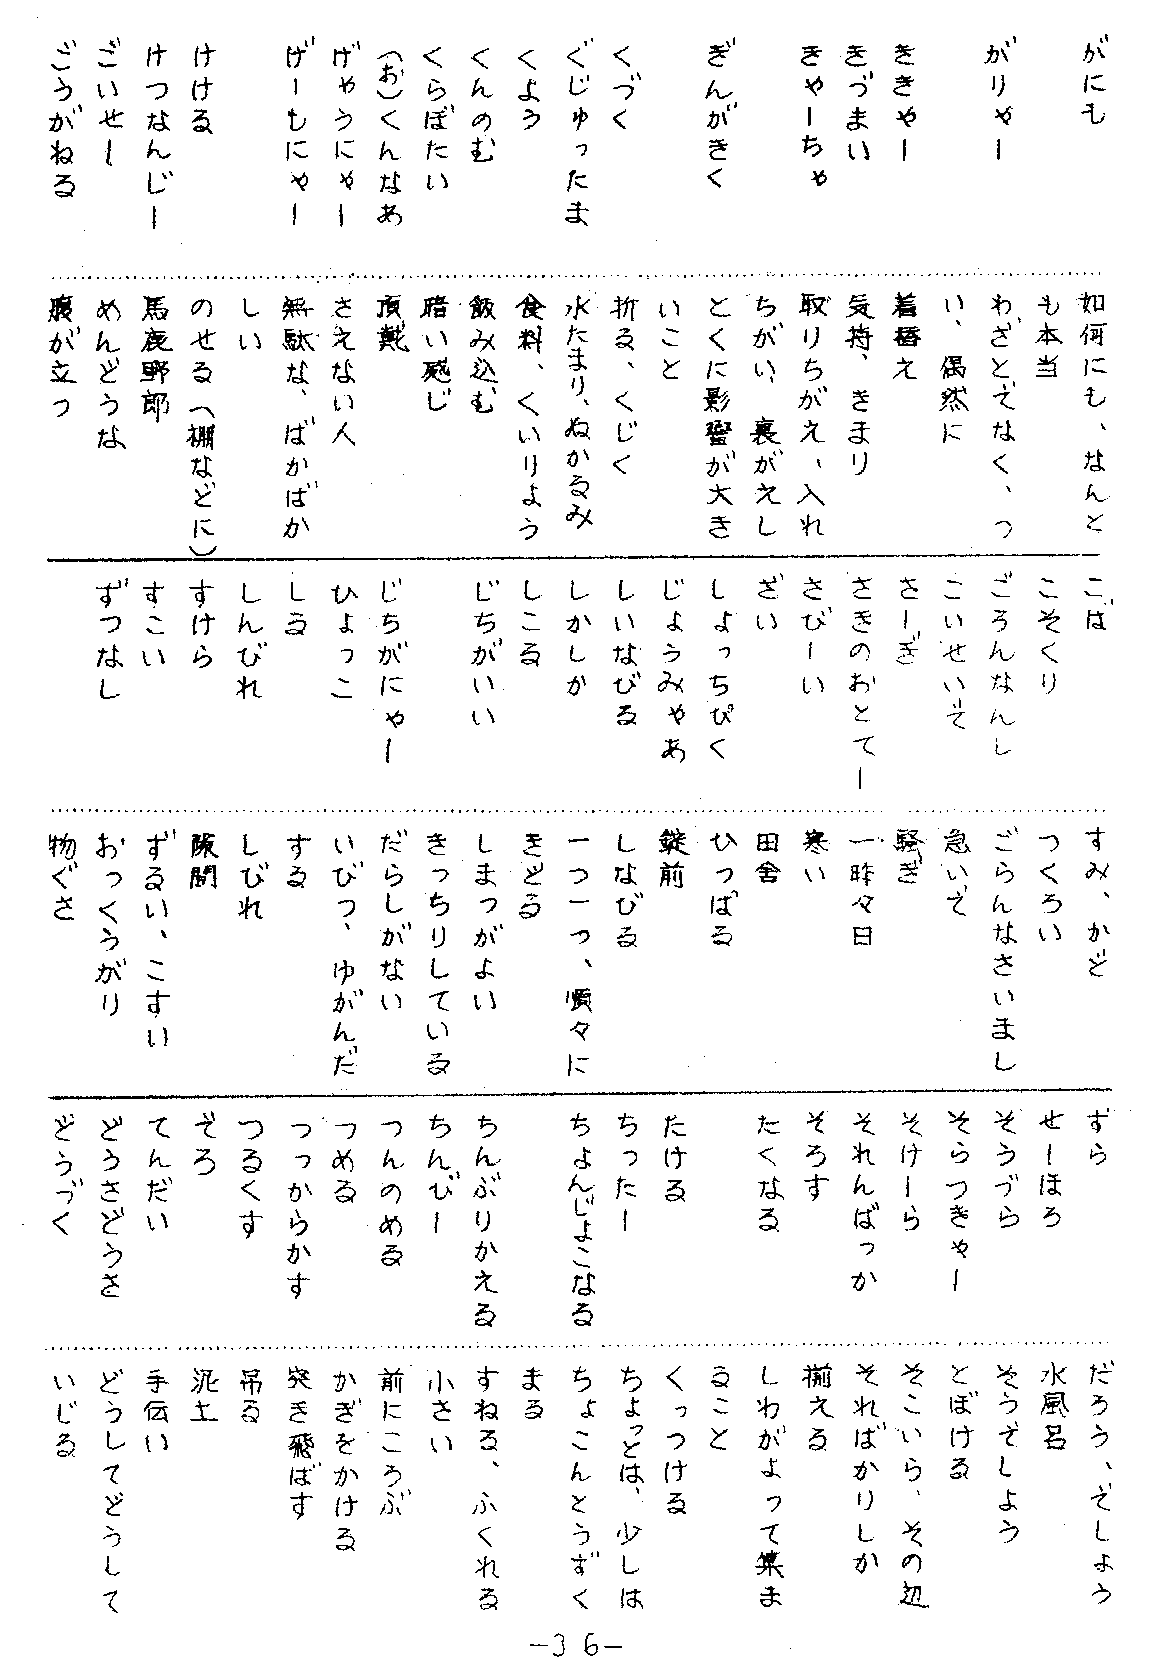 がにも 如何にも、なんと
も本当
がりゃー わざとでなく、つ
い、偶然に
ききゃー 着替え
きづまい 気持、きまり
きゃーちゃ 取りちがえ、入れ
ちがい、裏がえし
ぎんがきく とくに影響が大き
いこと
くづく 折る、くじく
ぐじゅったま 水たまり、ぬかるみ
くよう 食料、くいりよう
くんのむ 飲み込む
くらぼたい 暗い感じ
(お)くんなあ 頂戴
げゃうにゃー さえない人
げーもにゃー 無駄な、ばかばか
しい
けける のせる(棚などに)
けつなんじー 馬鹿野郎
ごいせー めんどうな
ごうがねる 腹が立つ
こば すみ、かど
こそくり つくろい
ごろんなんし ごらんなさいまし
こいせいで 急いで
さーぎ 騒ぎ
さきのおとてー 一昨々日
さびーい 寒い
ざい 田舎
しょっちぴく ひっぱる
じょうみゃあ 錠前
しいなびる しなびる
しかしか 一つ一つ、順々に
しこる きどる
じちがいい しまつがよい
きっちりしている
じちがにゃー だらしがない
ひょっこ いびつ、ゆがんだ
しる する
しんびれ しびれ
すけら 隙間
すこい ずるい、こすい
ずつなし おっくうがり
物ぐさ
ずら だろう、でしょう
せーほろ 水風呂
そうづら そうでしょう
そらつきゃー とぼける
そけーら そこいら、その辺
それんばっか そればかりしか
そろす 揃える
たくなる しわがよって集ま
ること
たける くっつける
ちったー ちょっとは、少しは
ちょんじょこなる ちょこんとうずく
まる
ちんぶりかえる すねる、ふくれる
ちんびー 小さい
つんのめる 前にころぶ
つめる かぎをかける
つっからかす 突き飛ばす
つるくす 吊る
どろ 泥土
てんだい 手伝い
どうさどうさ どうしてどうして
どうづく いじる
-36-